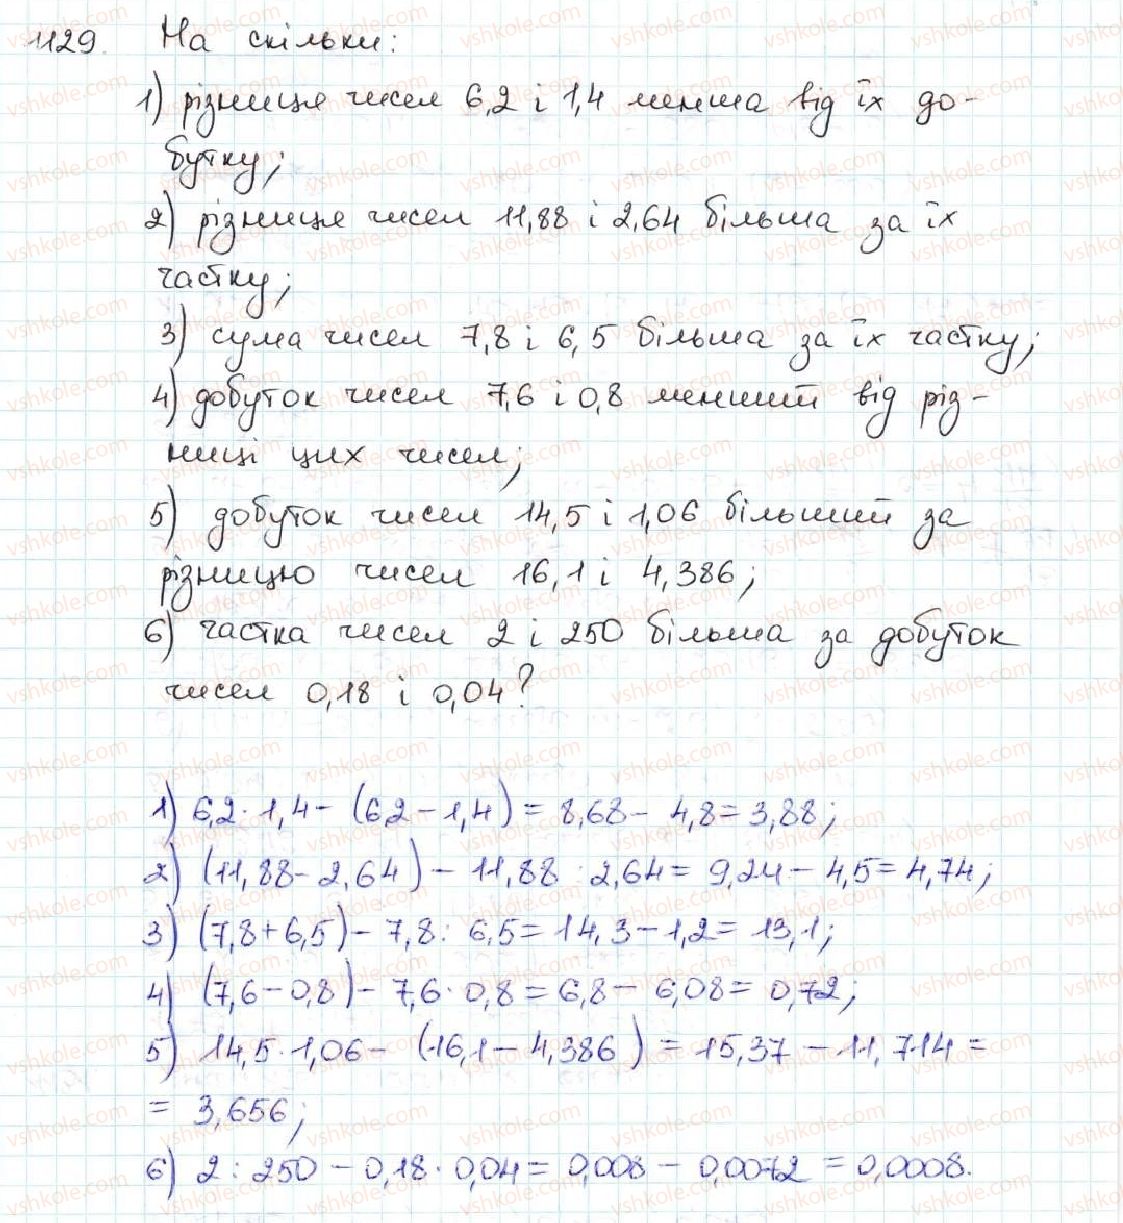 1129. На скільки:
1) різниця чисел 6,2 і 1,4 менша від їх до-
бутку;
2) різниця чисел 11,88 і 2,64 більша за їх
частку;
3) сума чисел 7,8 і 6,5 більша за їх частку;
4) добуток чисел 7,6 і 0,8 менший від різ-
ниці цих чисел;
5) добуток чисел 14,5 і 1,06 більший за
різницю чисел 16,1 і 4,386;
6) частка чисел 2 і 250 більша за добуток
чисел 0,18 і 0,04?
1) 6,2 · 1,4 - (6,2 - 1,4) = 8,68 - 4,8 = 3,88;
2) (11,88 - 2,64) - 11,88 : 2,64 = 9,24 - 4,5 = 4,74;
3) (7,8 + 6,5) - 7,8 : 6,5 = 14,3 - 1,2 = 13,1;
4) (7,6 - 0,8) - 7,6 · 0,8 = 6,8 - 6,08 = 0,72;
5) 14,5 · 1,06 - (16,1 - 4,386) = 15,37 - 11,714 =
= 3,656;
6) 2 : 250 - 0,18 · 0,04 = 0,008 - 0,0072 = 0,0008.